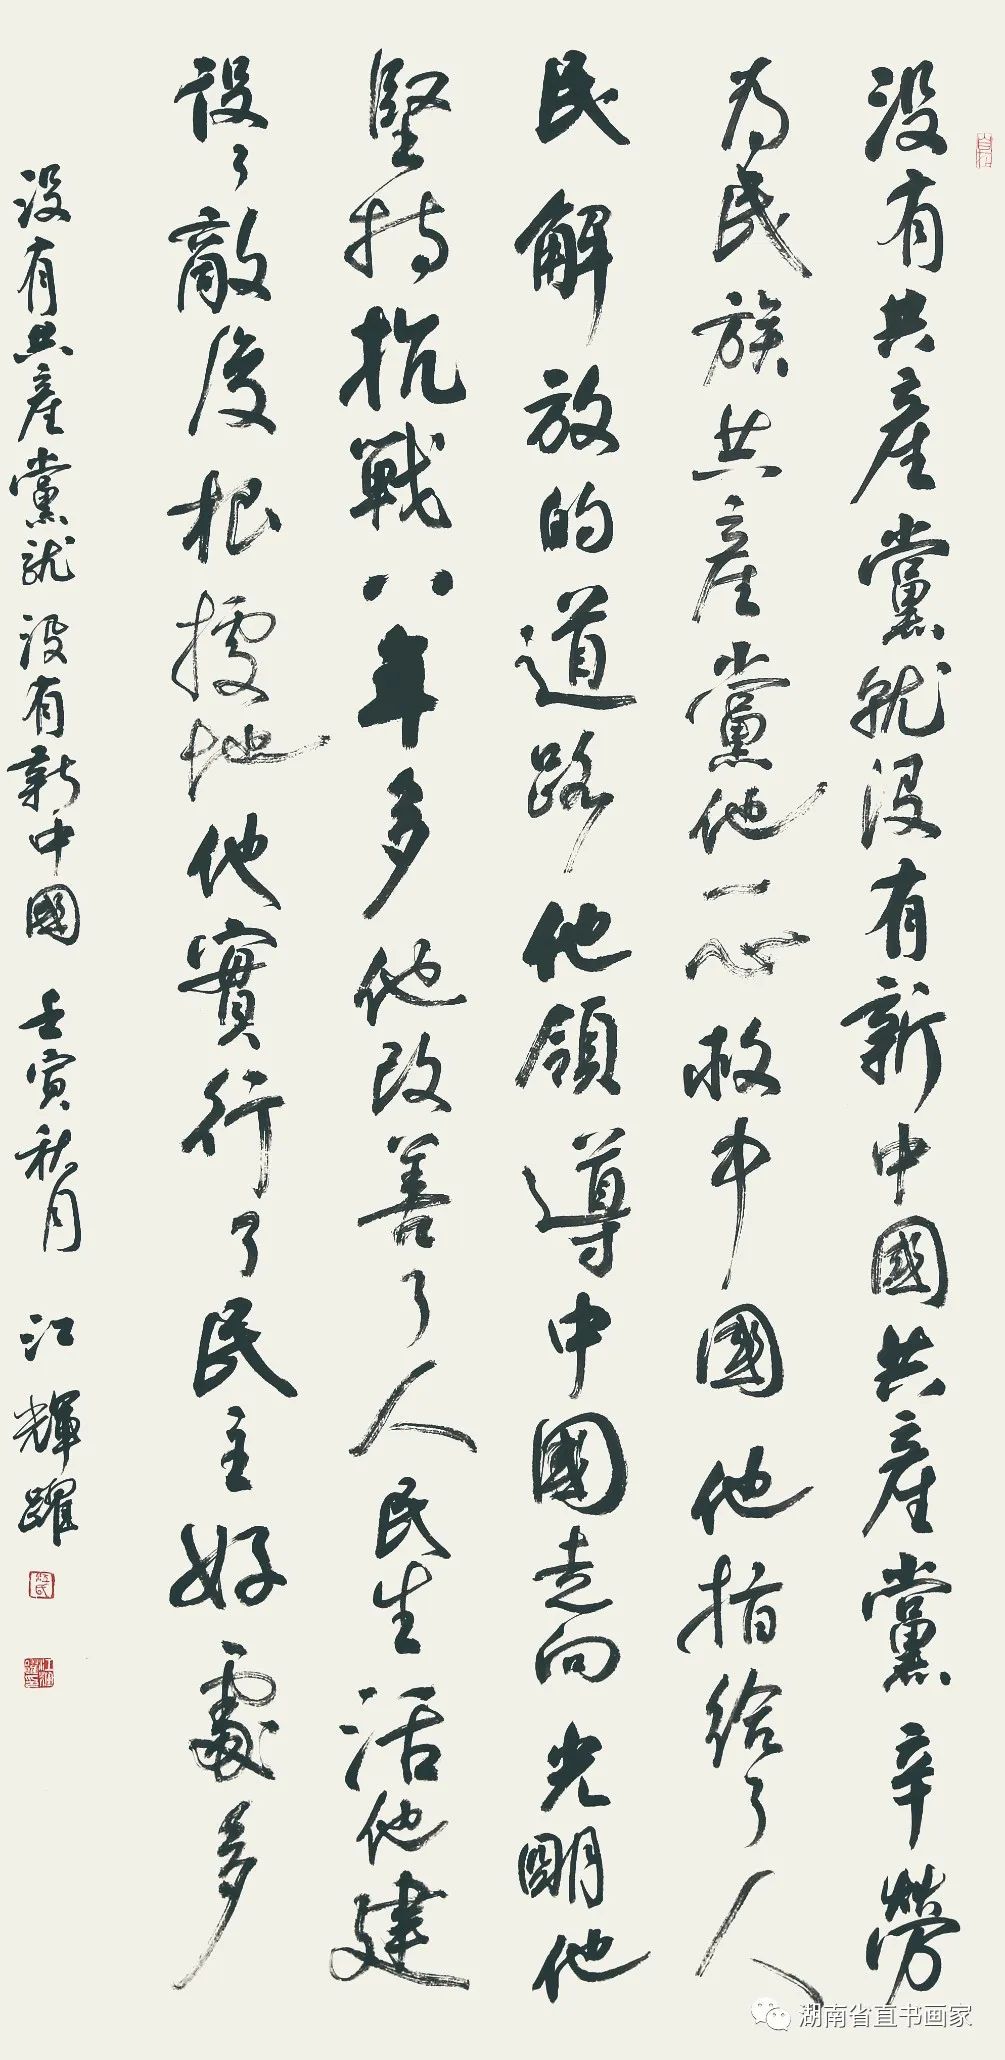 没有共產黨就没有新中國共產黨辛勞
为民族共產黨他一心救中國他指给了人
民解放的道路他領導中國走向光明他
堅持抗戰八年多他改善了人民生活他建
設了敵後根據地他實行了民主好處多
没有共產黨就没有新中國 壬寅秋月 江輝躍
湖南省直书画家